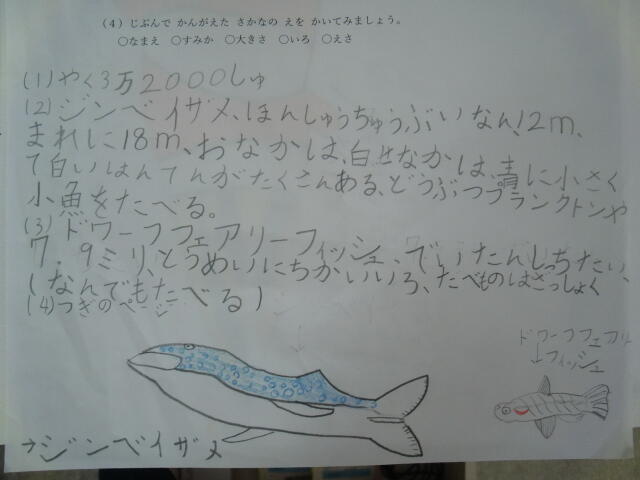 (4) じぶんで かんがえた さかなの えを かいてみましょう。
○なまえ ○すみか ○大きさ ○いろ ○えさ
(1)やく3万2000しゅ
(2)ジンベイザメ、ほんしゅうちゅうぶいなん、12m、
まれに18m、おなかは、白せなかは、青に小さく
て白いはんてんがたくさんある、どうぶつプランクトンや
小魚をたべる。
(3)ドワーフフェアリーフィッシュ、でいたんしっちたい、
7.9ミリ、とうめいにちかいいろ、たべものはざっしょく
(なんでもたべる)
(4)つぎのページ
ドワーフフェアリ
↓フィッシュ
→ジンベイザメ